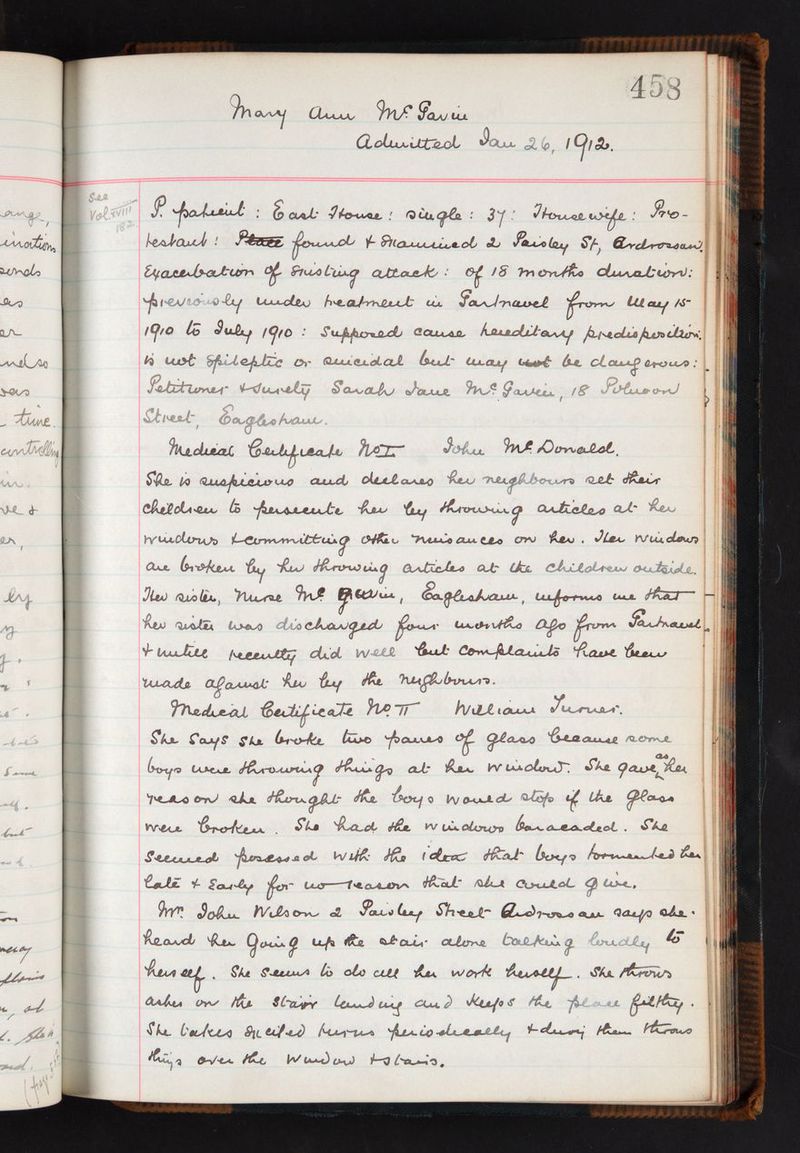 458
Mary Ann McGavin
Admitted Jan 26, 1912.
See
Vol XVIII
182
P. patient : East House : single : 37 : Housewife : Pro-
testant : Place found & examined 2 Paisley St, Ardrossan.
Exacerbation of existing attack : of 18 months duration :
previously under treatment in Gartnavel from May 15
1910 to July 1910 : Supposed cause hereditary predisposition.
is not Epileptic or suicidal but may not be dangerous :
Petitioner & Surety Sarah Jane McGavin, 18 Polnoon
Street, Eaglesham.
Medical Certificate No I John McDonald.
She is suspicious and declares her neighbours set their
children to persecute her by throwing articles at her
windows & committing other nuisances on her. Her windows
are broken by her throwing articles at the children outside.
Her sister, Nurse McGavin, Eaglesham, informs me that
her sister was discharged four months ago from Gartnavel
& untill recently did well but complaints have been
made against her by the neighbours.
Medical Certificate No II William Turner.
She says she broke two panes of glass because some
boys were throwing things at her window. She gave as her
reason she thought the boys would stop if the glass
were broken. She had the windows baracaded. She
seemed posessed with the idea that boys tormented her
late & early for no reason that she could give.
Mr. John Wilson 2 Paisley Street Ardrossan says she.
heard her going up the stair alone talking loudly to
herself. She seems to do all her work herself. She throws
ashes on the stair landing and keeps the place filthy.
She takes excited turns periodically & during them throws
things over the window & stairs.
ange,
inations
time.
controlling
in.
ve &
er,
by
but